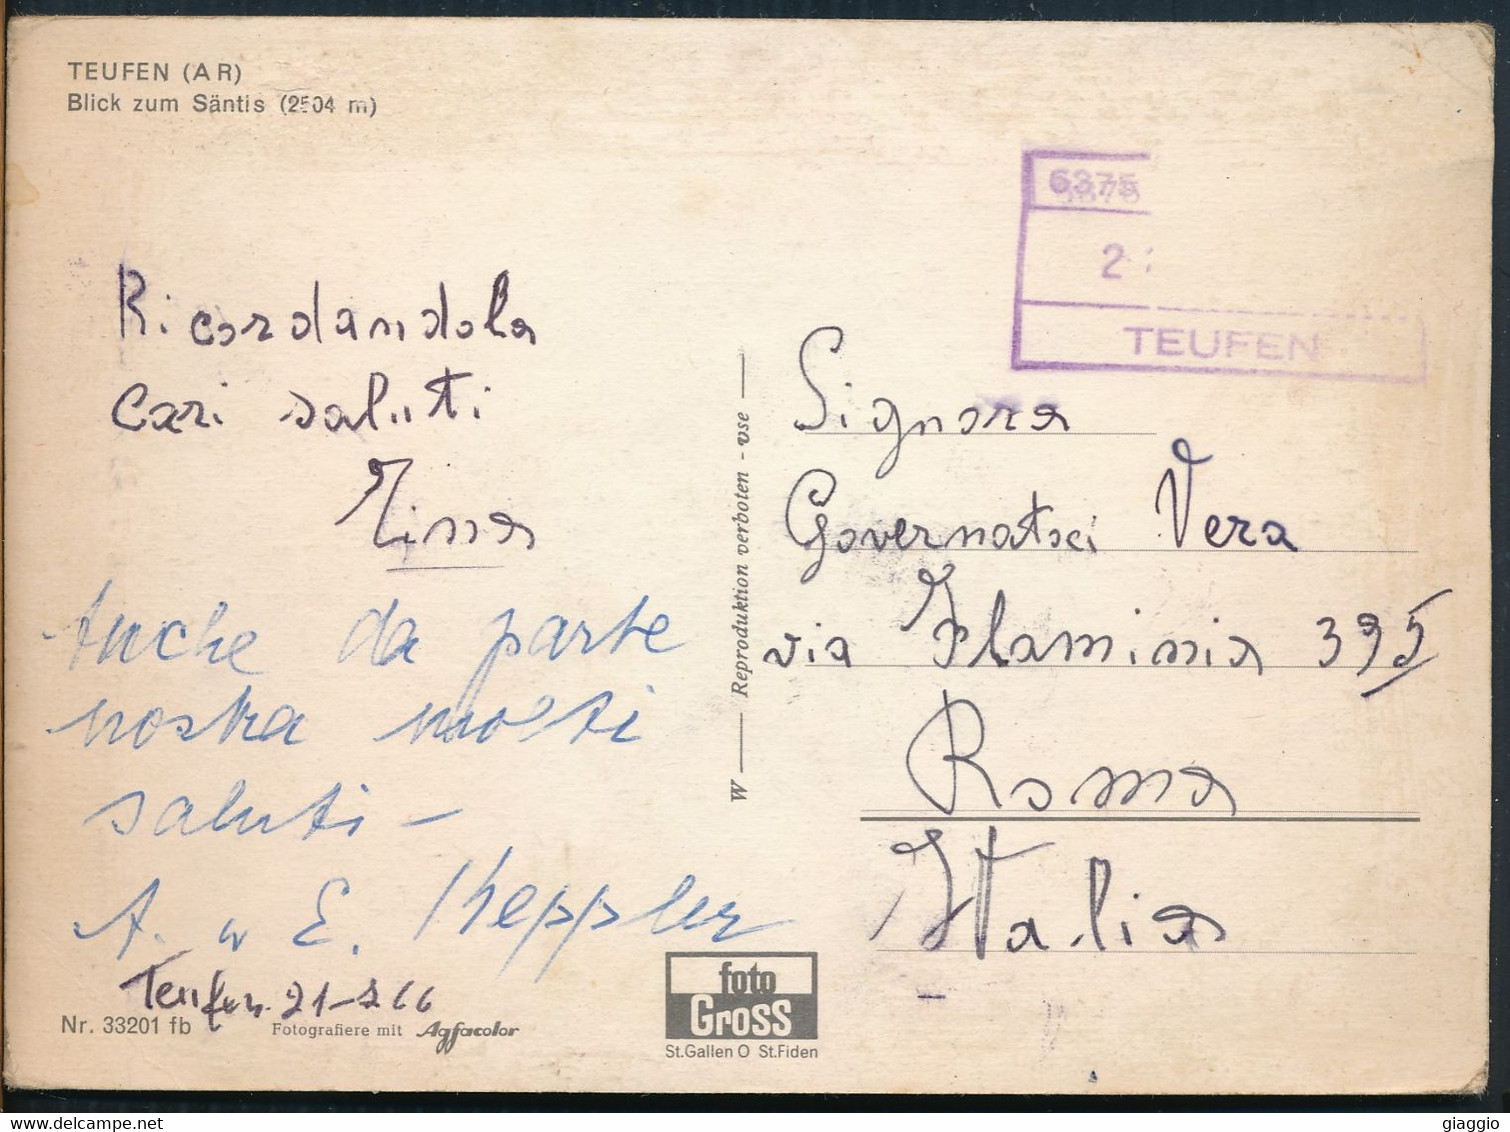 TEUFEN (AR)
Blick zum Säntis (2504 m)
6375
2
TEUFEN
Ricordandola
cari saluti
Signora
Governatori Vera
via Flaminia 395
Roma
Italia
Anche da parte
nostra molti
saluti -
A. u E. Keppler
Teufen. 21-
Nr. 33201 fb
Fotografiere mit Agfacolor
W — Reproduktion verboten - vse —
foto
Gross
St.Gallen O St.Fiden
www.delcampe.net
giaggio